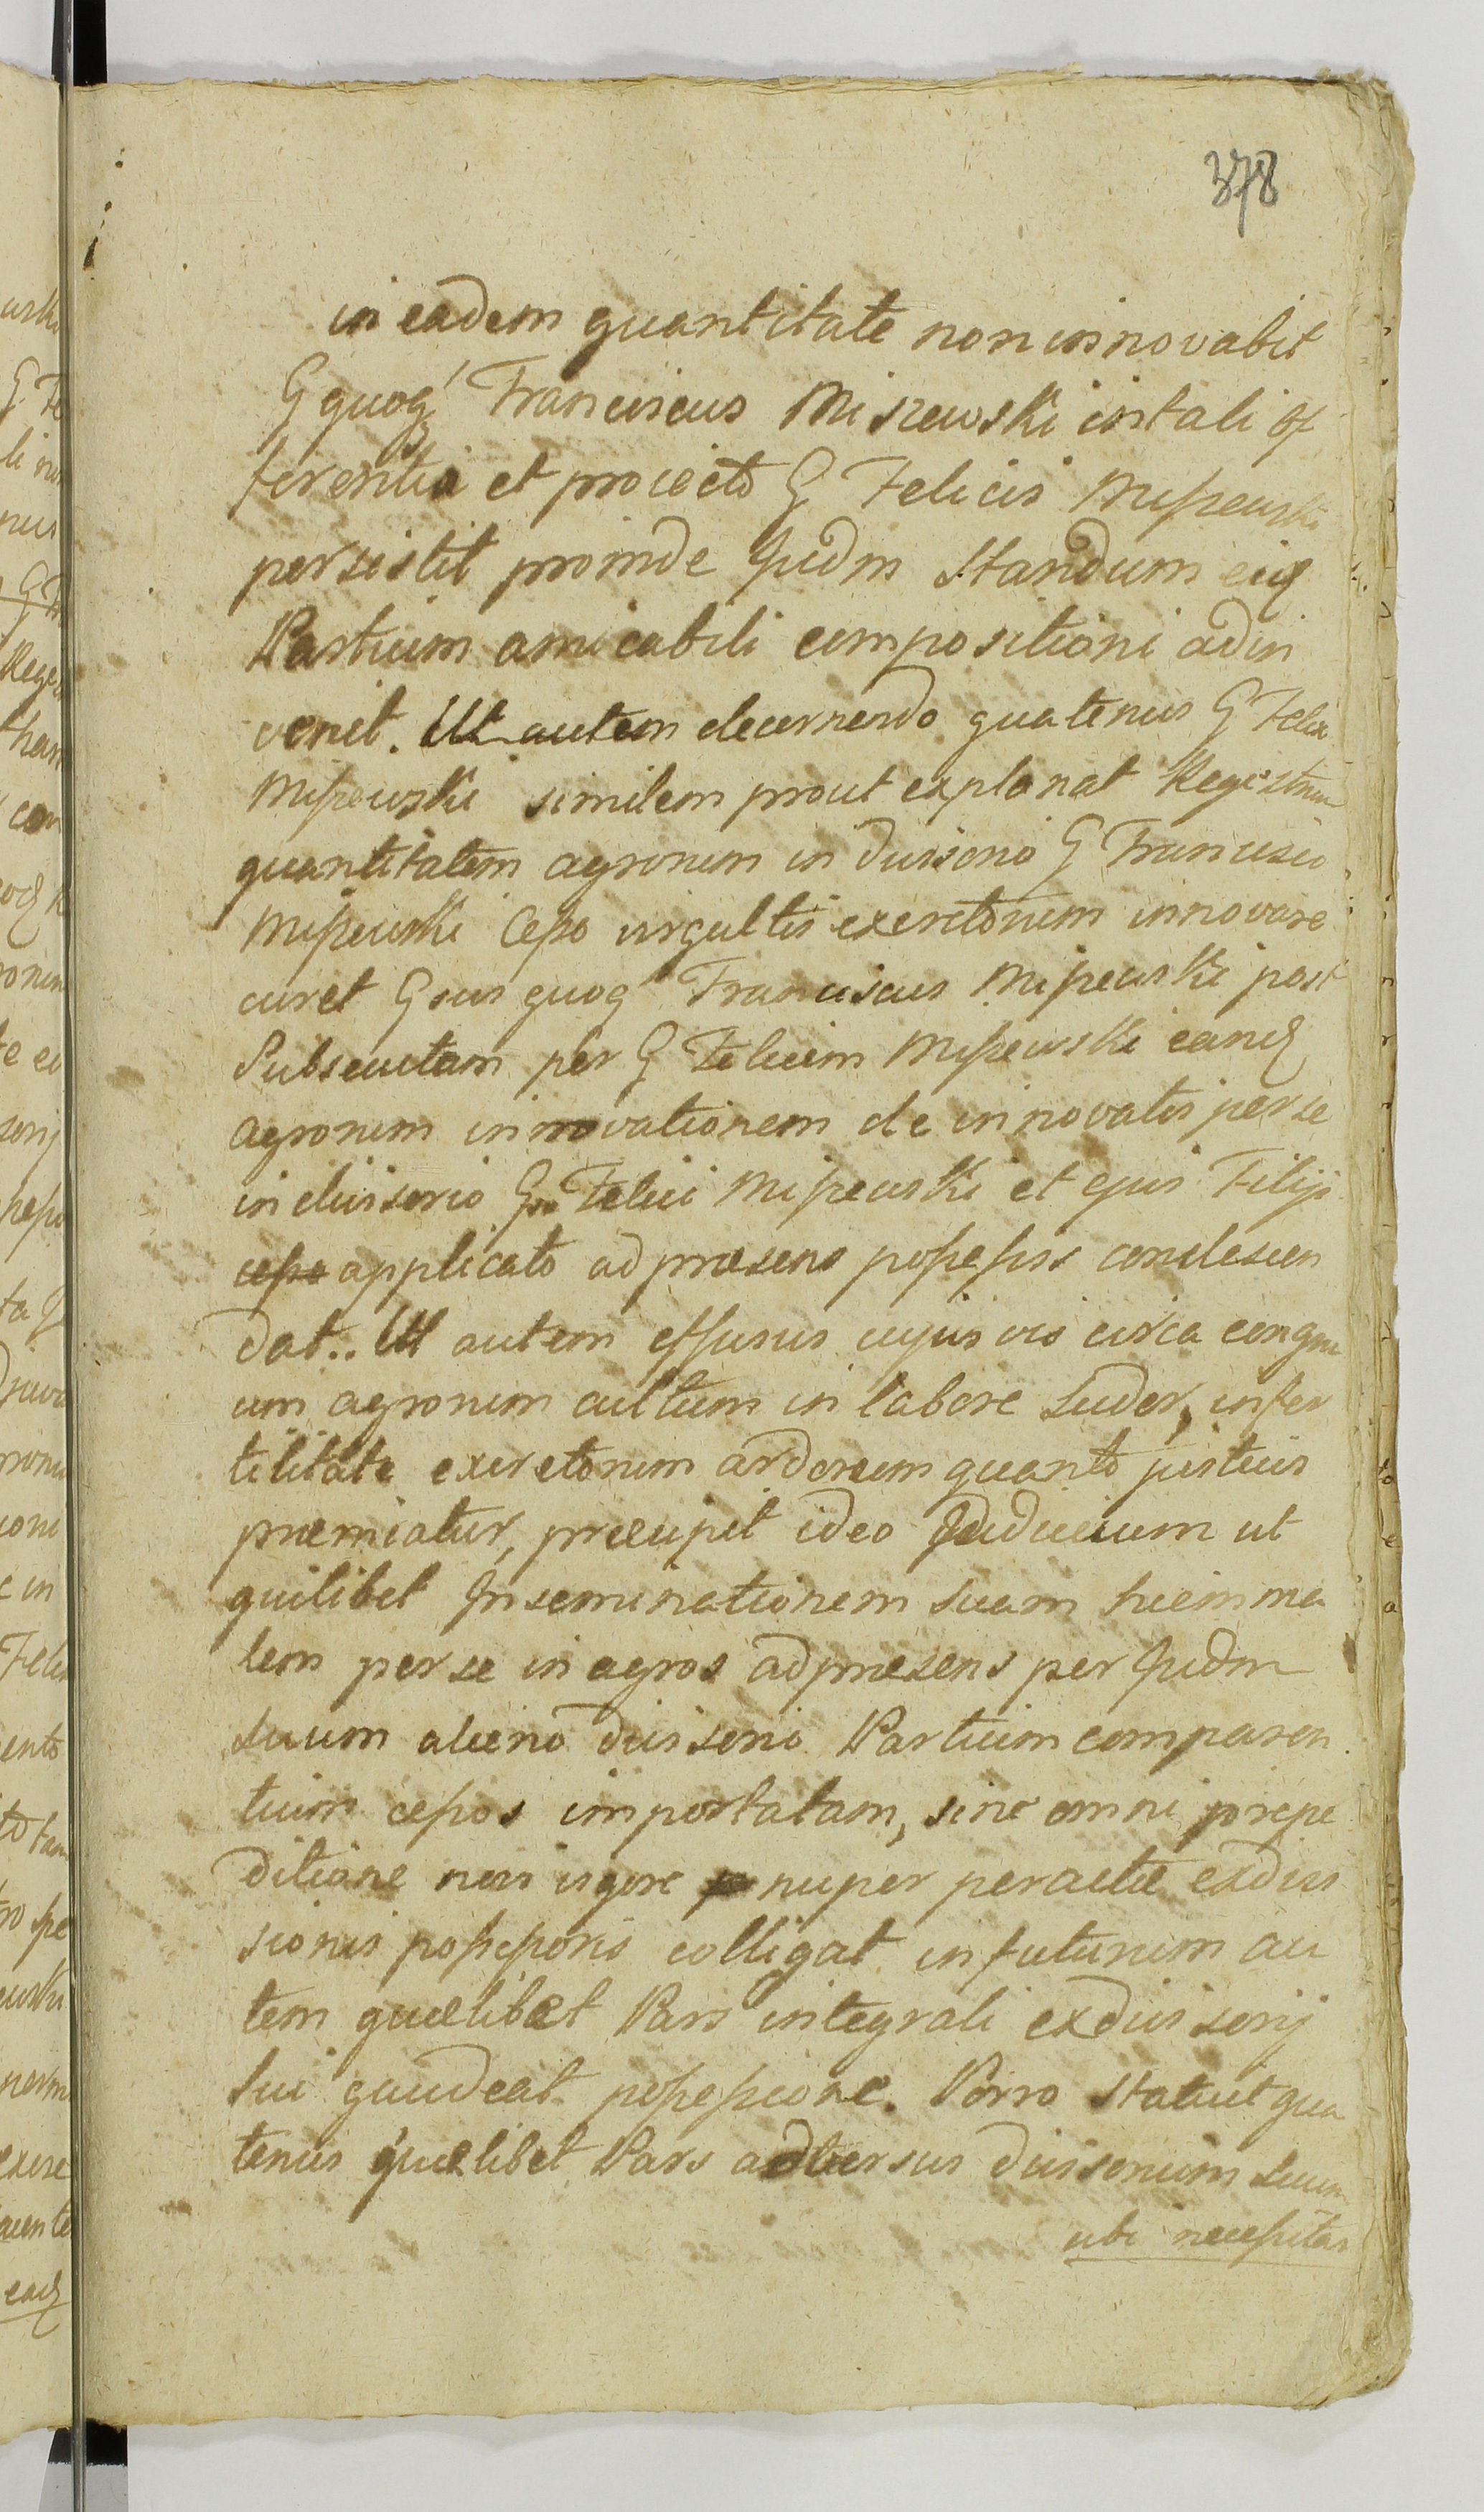 378
in eadem quantitate non innovabit
G quoq́ Franciscus Miszewski in tali of
ferentia et proiecto G Felicis Miszewski
persistit proinde Judm standum eiq
Partium amicabili compositioni adin
venit. Ut autem decernendo quatenus G Felix
Miszewski similem prout explanat Registrum
quantitatem agrorum in duisorio G Francisco
Miszewski Cesso virgultis excretorum innovare
curet Gsus quoq́ Franciscus Miszewski post
Subsecutam per G Felicem Miszewski eand
agrorum innovationem de innovatis per se
in duissorio Gso Felici Miszewski et ejus Filijs
cesso applicato ad praesens possessis condescen
dat.. Ut autem effusus cujusvis circa congru
um agrorum cultum in labore sudor, infer
tilitate excretorum ardorem quanto justius
praemiatur, praecipit ideo Judicium ut
quilibet Inseminationem suam hiemma
lem per se in agros ad praesens per Judm
suum alieno duissorio Partium comparen
tium cessos importatam, sine omni prepe
ditione non vigore nuper peractae exdivi
sionis possessoris colligat in futurum au
tem quaelibet Pars integrali exduissorij
sui gaudeat possessione. Porro statuit qua
tenus quaelibet Pars adversus duissorium suum
ubi necessitas